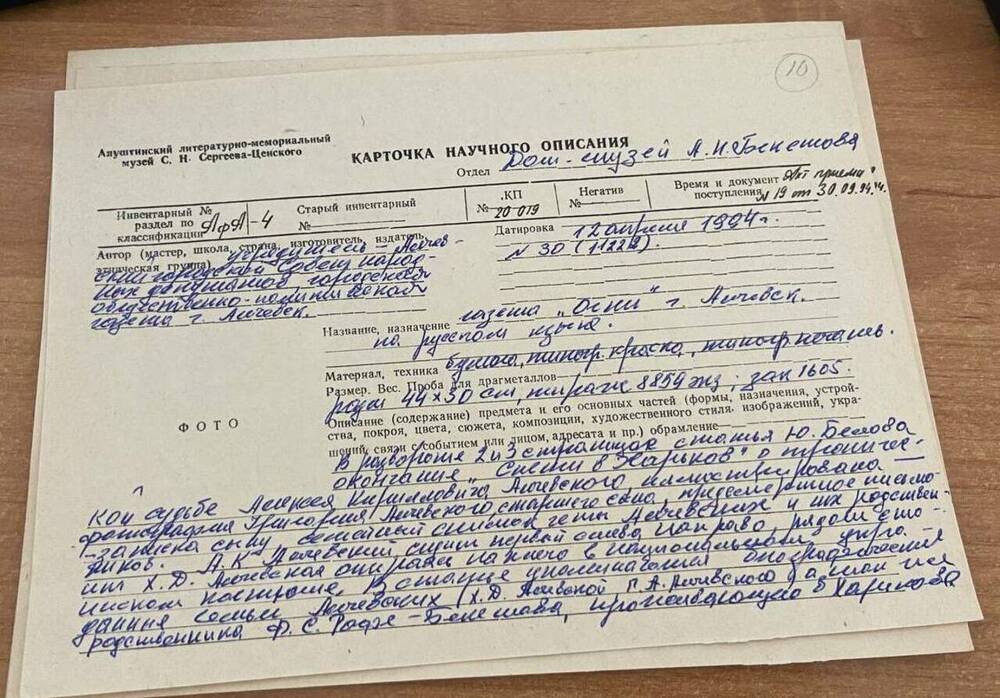 10
Алуштинский литературно-мемориальный
музей С. Н. Сергеева-Ценского
КАРТОЧКА НАУЧНОГО ОПИСАНИЯ
Отдел Дом-музей А.Н.Бекетова
Инвентарный №
раздел по
классификации АфА-4
Старый инвентарный
№
КП
№ 20 019
Негатив
№
Время и документ Акт приёма
поступления №19 от 30.09.94 г.
Автор (мастер, школа, страна, изготовитель, издатель,
этническая группа) учредитель - Алчев-
ский городской Совет народ-
ных депутатов, городская
общественно-политическая
газета г. Алчевск.
Датировка 12 апреля 1994 г.
№ 30 (11222).
Название, назначение газета „Огни" г. Алчевск.
на русском языке.
Материал, техника бумага, типогр. краска, типогр. печать.
Размер. Вес. Проба для драгметаллов
44×30 см, тираж 8854 экз; зак 1605.
Описание (содержание) предмета и его основных частей (формы, назначения, устрой-
ства, покроя, цвета, сюжета, композиции, художественного стиля, изображений, укра-
шений, связи с событием или лицом, адресата и пр.) обрамление
ФОТО
В развороте 2 и 3 страницах статья Ю. Белова
окончание „ в Харьков" о трагичес-
кой судьбе Алексея Кирилловича Алчевского, иллюстрирована
фотография Григория Алчевского старшего сына, предсмертное письмо
-записка сыну, семейный снимок четы Алчевских и их родствен-
ников. А.К Алчевский сидит первый слева направо, рядом сто-
ит Х.Д. Алчевская опираясь на него в национальном укра-
инском костюме. В статье упоминаются биографические
данные семьи Алчевских (Х.Д. Алчевской Г.А. Алчевского) а так же
родственника Ф.С. Рофе-Бекетова, проживающего в Харькове